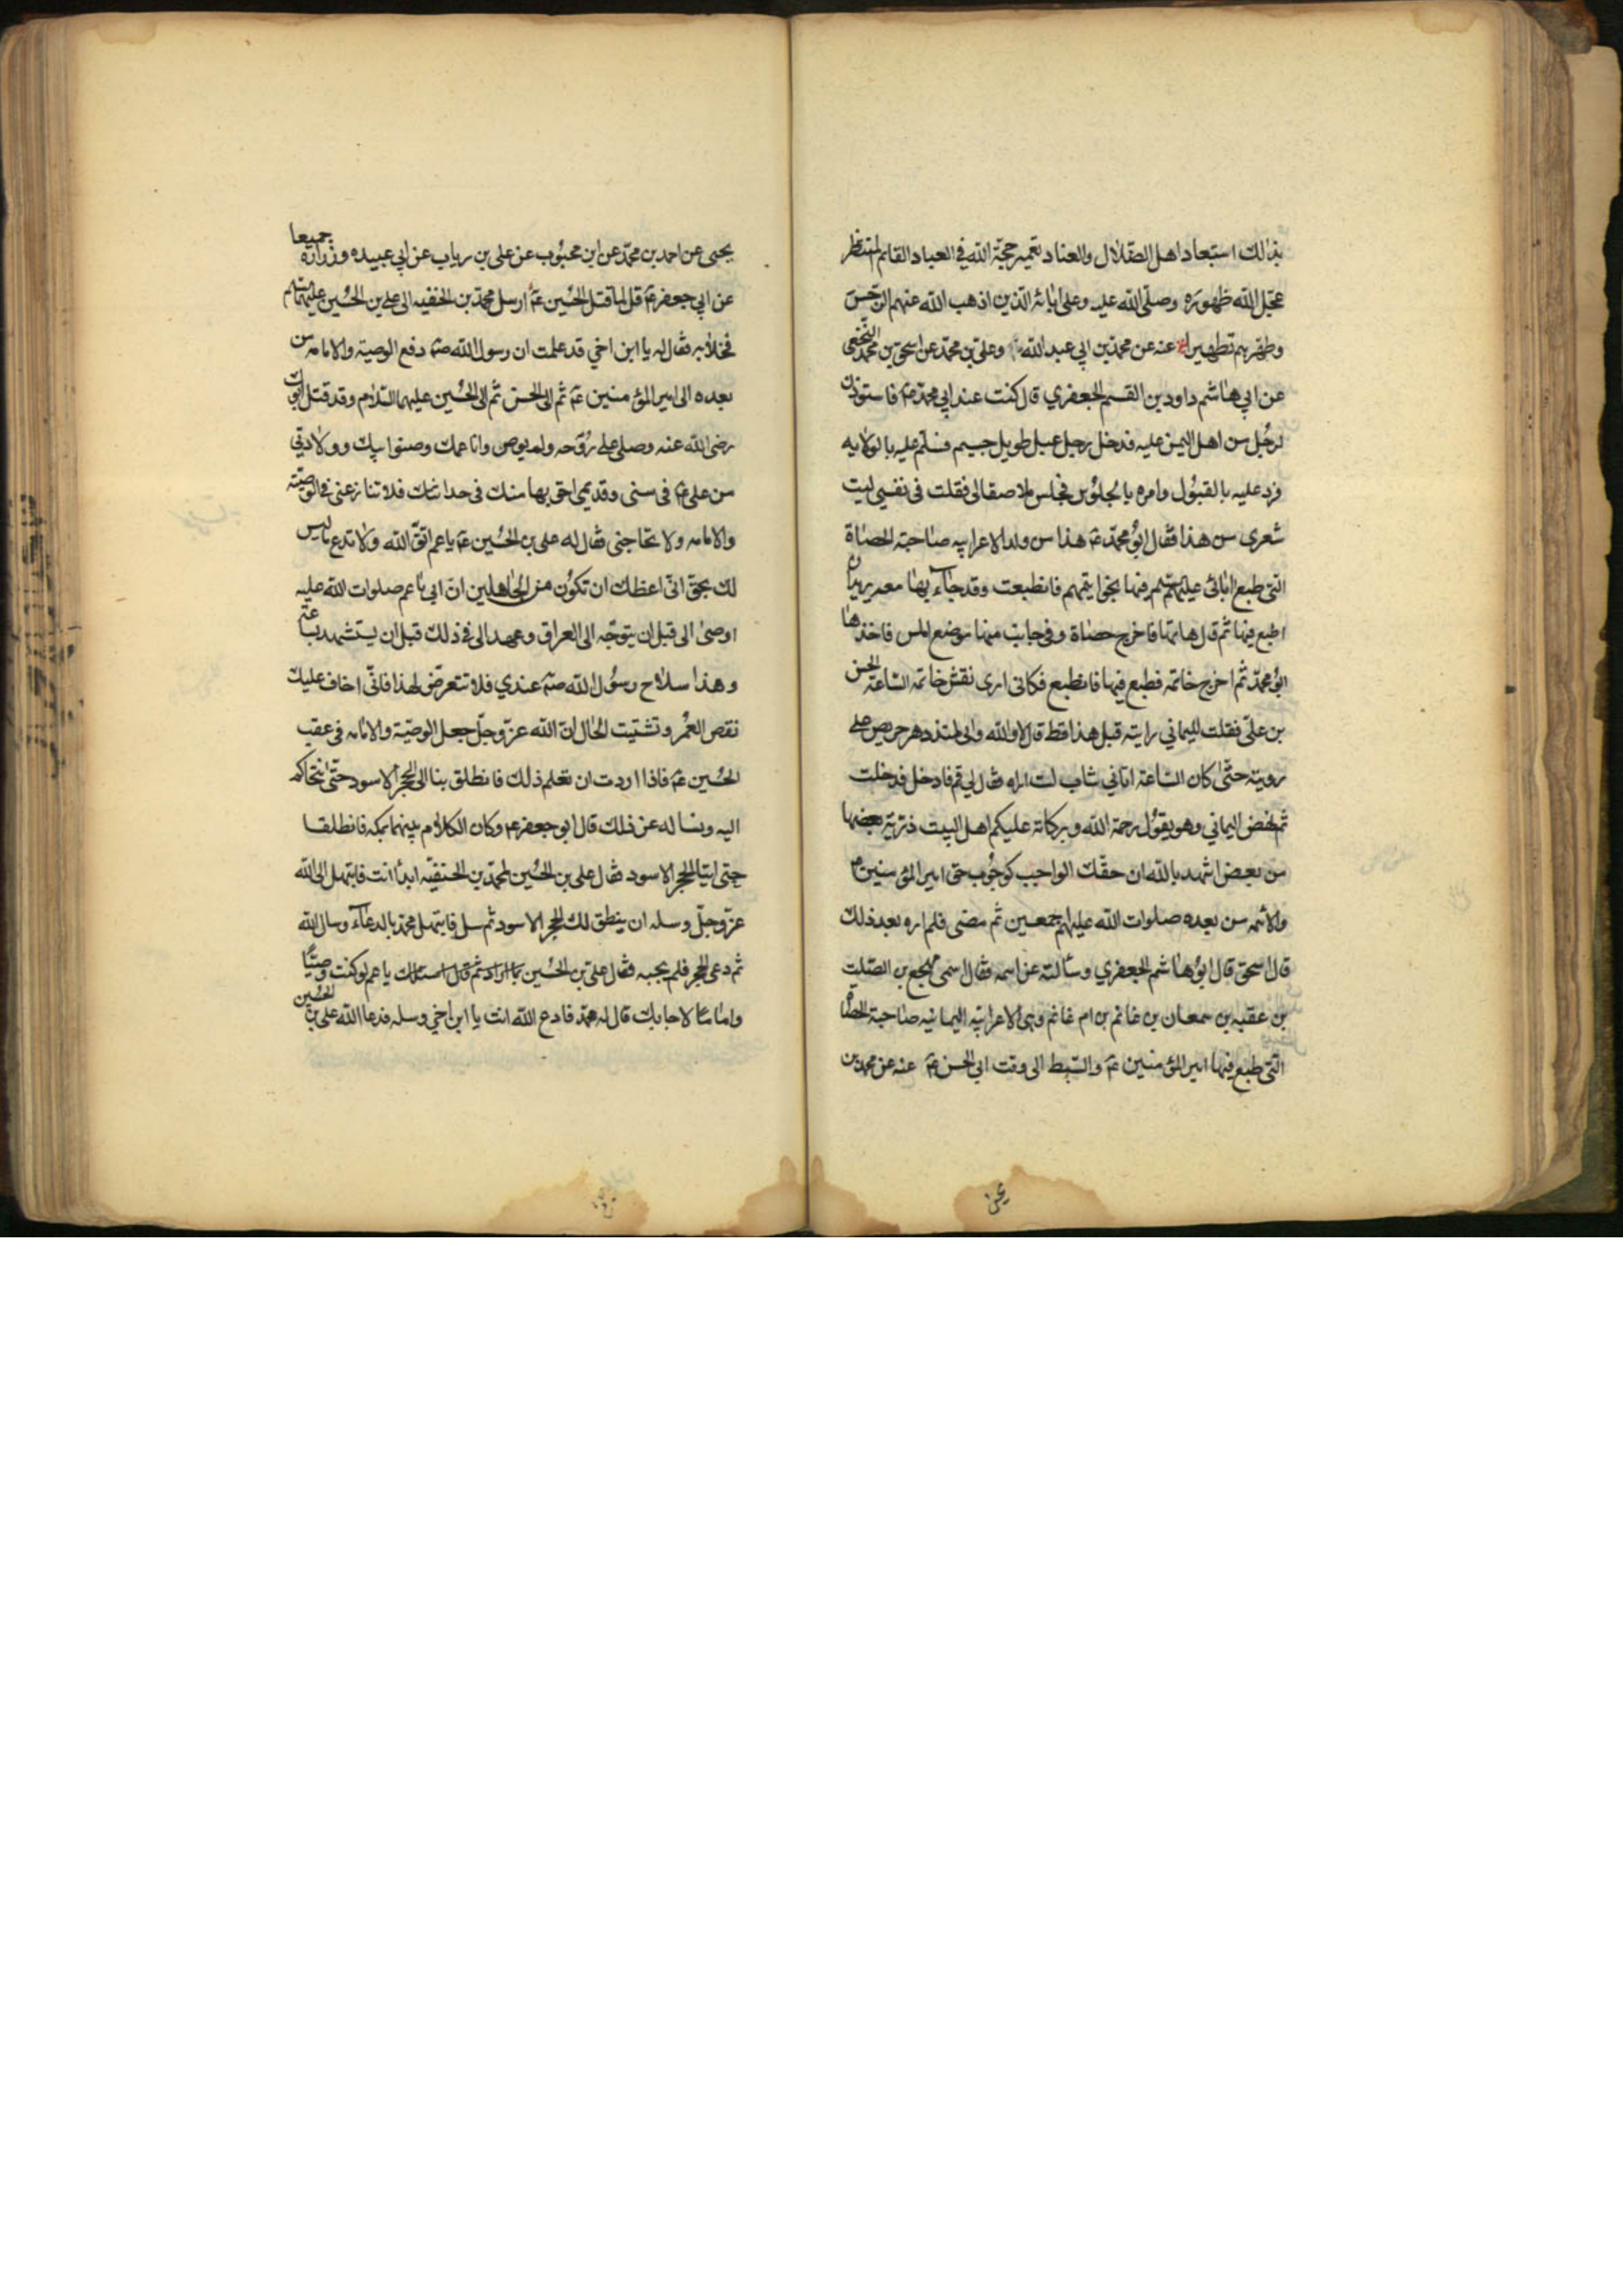 بذلك استبعاد اهل الضلال والعناد تعمير حجة الله في العباد القائم المنتظر
عجل الله ظهوره وصلى الله عليه وعلى ابائه الذين اذهب الله عنهم الرجس
وطهرهم تطهيرا عنه عن محمد بن ابي عبد الله وعلي بن محمد عن اسحق بن محمد النخعي
عن ابي هاشم داود بن القسم الجعفري قال كنت عند ابي محمد عم فاستوذن
لرجل من اهل اليمن عليه فدخل رجل عبل طويل جسيم فسلم عليه بالولايه
فرد عليه بالقبول وامره بالجلوس فجلس ملاصقا لي فقلت في نفسي ليت
شعري من هذا فقال ابو محمد عم هذا من ولد الاعرابيه صاحبة الحصاة
التي طبع ابائي عليهم فيها بخواتيمهم فانطبعت وقد جاء بها معه يريد ان
اطبع فيها ثم قال هاتها فاخرج حصاة وفي جانب منها موضع املس فاخذها
ابو محمد ثم اخرج خاتمه فطبع فيها فانطبع فكاني ارى نقش خاتمه الساعة الحسن
بن علي فقلت لليماني رايته قبل هذا قط قال لا والله واني لمنذ دهر حريص على
رويته حتى كان الساعة اتاني شاب لست اراه فقال لي قم فادخل فدخلت
ثم نهض اليماني وهو يقول رحمة الله وبركاته عليكم اهل البيت ذرية بعضها
من بعض اشهد بالله ان حقك الواجب كوجوب حق امير المؤمنين
والائمه من بعده صلوات الله عليهم اجمعين ثم مضى فلم اره بعد ذلك
قال اسحق قال ابو هاشم الجعفري وسالته عن اسمه فقال اسمي مهجع بن الصلت
بن عقبه بن سمعان بن غانم بن ام غانم وهي الاعرابيه اليمانيه صاحبة الحصاة
التي طبع فيها امير المؤمنين عم والسبط الى وقت ابي الحسن عم عنه عن محمد بن
يحيى
يحيى عن احمد بن محمد عن ابن محبوب عن علي بن رياب عن ابي عبيده وزراره جميعا
عن ابي جعفر عم قال لما قتل الحسين عم ارسل محمد بن الحنفيه الى علي بن الحسين عليهما السلام
فخلا به فقال له يا ابن اخي قد علمت ان رسول الله صم دفع الوصية والامامه من
بعده الى امير المؤمنين عم ثم الى الحسن ثم الى الحسين عليهما السلام وقد قتل ابوك
رضي الله عنه وصلى على روحه ولم يوص وانا عمك وصنو ابيك وولادتي
من علي عم في سني وقديمي احق بها منك في حداثتك فلا تنازعني في الوصية
والامامه ولا تحاجني فقال له علي بن الحسين عم يا عم اتق الله ولا تدع ما ليس
لك بحق اني اعظك ان تكون من الجاهلين ان ابي يا عم صلوات الله عليه
اوصى الي قبل ان يتوجه الى العراق وعهد الي في ذلك قبل ان يستشهد بساعة
وهذا سلاح رسول الله صم عندي فلا تتعرض لهذا فاني اخاف عليك
نقص العمر وتشتيت الحال ان الله عز وجل جعل الوصية والامامه في عقب
الحسين عم فاذا اردت ان تعلم ذلك فانطلق بنا الى الحجر الاسود حتى نتحاكم
اليه ونساله عن ذلك قال ابو جعفر عم وكان الكلام بينهما بمكه فانطلقا
حتى اتيا الحجر الاسود فقال علي بن الحسين لمحمد بن الحنفيه ابدا انت فابتهل الى الله
عز وجل وسله ان ينطق لك الحجر الاسود ثم سل فابتهل محمد بالدعاء وسال الله
ثم دعى الحجر فلم يجبه فقال علي بن الحسين يا عم لو كنت وصيا
واماما لاجابك قال له محمد فادع الله انت يا ابن اخي وسله فدعا الله علي بن الحسين